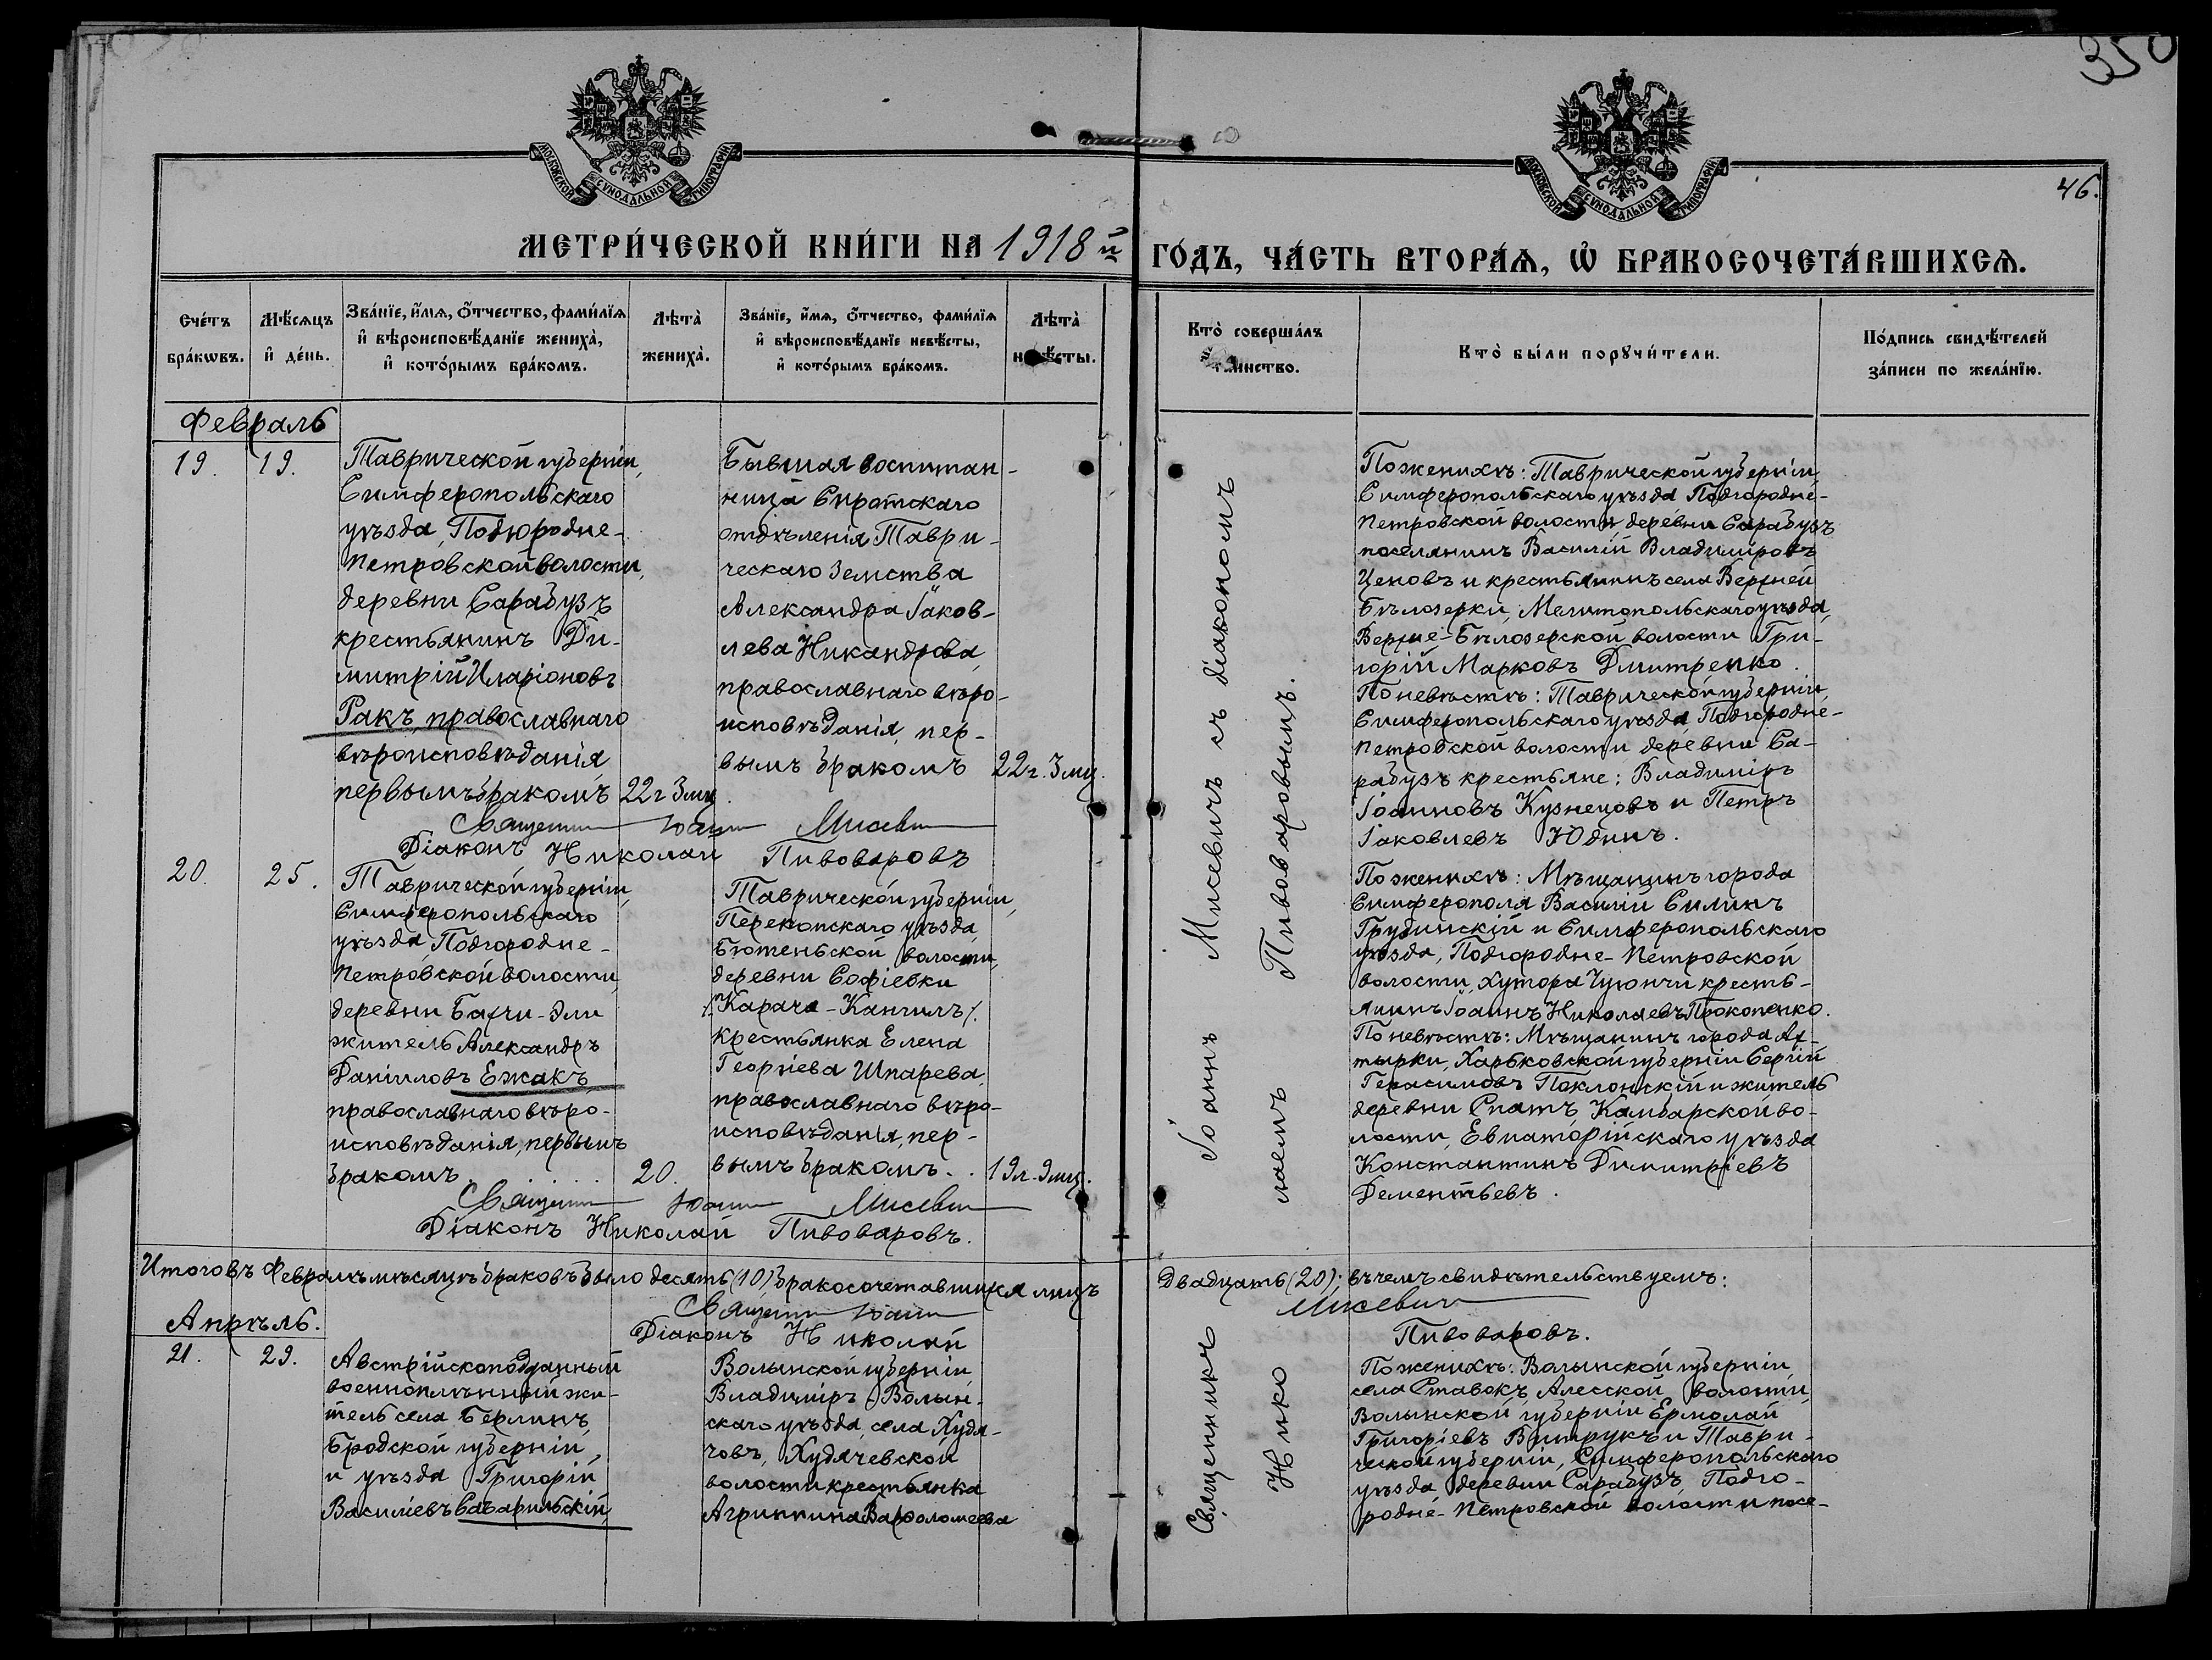 350
46.
МОСКОВСКОЙ СѴНОДАЛЬНОЙ ТИПОГРАФІИ
МОСКОВСКОЙ СѴНОДАЛЬНОЙ ТИПОГРАФІИ
МЕТРИ́ЧЕСКОЙ КНИ́ГИ НА 1918й ГО́ДЪ, ЧА́СТЬ ВТОРА́Ѧ, Ѡ҆ БРАКОСОЧЕТА́ВШИХСѦ.
Сче́тъ
бра́кѡвъ.
Мѣ́сѧцъ
и҆ де́нь.
Зва́нїе, и҆́мѧ, ѻ҆́тчество, фами́лїѧ
и҆ вѣроисповѣ́данїе жениха̀,
и҆ кото́рымъ бра́комъ.
Лѣта̀
жениха̀.
Зва́нїе, и҆́мѧ, ѻ҆́тчество, фами́лїѧ
и҆ вѣроисповѣ́данїе невѣ́сты,
и҆ кото́рымъ бра́комъ.
Лѣта̀
невѣ́сты.
Кто̀ соверша́лъ
таинство.
Кто̀ бы́ли порꙋчи́тели.
По́дпись свидѣ́телей
за́писи по жела́нїю.
Февраль
19. 19.
Таврической губерніи,
Симферопольскаго
уѣзда, Подгородне-
Петровской волости,
деревни Сарабузъ
крестьянинъ Ди-
митрій Иларіоновъ
Ракъ, православнаго
вѣроисповѣданія,
первымъ бракомъ
22 г 3 мц.
Бывшая воспитан-
ница Сиротскаго
отдѣленія Таври-
ческаго Земства
Александра Іаков-
лева Никандрова,
православнаго вѣро-
исповѣданія, пер-
вымъ бракомъ
22 г. 3 мц.
Священникъ Іоаннъ Мисевичъ
Діаконъ Николай Пивоваровъ
По женихѣ: Таврической губерніи,
Симферопольскаго уѣзда Подгородне-
Петровской волости, деревни Сарабузъ
поселянинъ Василій Владиміровъ
Ценовъ и крестьянинъ села Верхней
Бѣлозерки, Мелитопольскаго уѣзда,
Верхне-Бѣлозерской волости Гри-
горій Марковъ Дмитренко.
По невѣстѣ: Таврической губерніи,
Симферопольскаго уѣзда, Подгородне-
Петровской волости деревни Са-
рабузъ крестьяне: Владиміръ
Іоанновъ Кузнецовъ и Петръ
Іаковлевъ Юдинъ.
20. 25.
Таврической губерніи,
Симферопольскаго
уѣзда, Подгородне-
Петровской волости,
деревни Бахчи-Эли
житель Александръ
Даніиловъ Ежакъ,
православнаго вѣро-
исповѣданія, первымъ
бракомъ.
20.
Таврической губерніи,
Перекопскаго уѣзда,
Бютеньской волости,
деревни Софіевки
/Карача-Кангилъ/.
крестьянка Елена
Георгіева Шпарева,
православнаго вѣро-
исповѣданія, пер-
вымъ бракомъ.
19 л. 9 мц.
Священникъ Іоаннъ Мисевичъ
Діаконъ Николай Пивоваровъ.
По женихѣ: Мѣщанинъ города
Симферополя Василій Силинъ
Грудинскій и Симферопольскаго
уѣзда, Подгородне-Петровской
волости, хутора Чуюнчи кресть-
янинъ Іоаннъ Николаевъ Прокопенко.
По невѣстѣ: Мѣщанинъ города Ах-
тырки, Харьковской губерніи Сергій
Герасимовъ Поклонскій и житель
деревни Спатъ, Камбарской во-
лости, Евпаторійскаго уѣзда
Константинъ Димитріевъ
Дементьевъ.
Священникъ Іоаннъ Мисевичъ съ діакономъ
Николаемъ Пивоваровымъ.
Итого въ Февралѣ мѣсяцѣ браковъ было десять (10), бракосочетавшихся лицъ Двадцать (20); въ чемъ свидѣтельствуемъ:
Священникъ Іоаннъ Мисевичъ
Діаконъ Николай Пивоваровъ.
Апрѣль.
21. 29.
Австрійскоподданный
военноплѣнный жи-
тель села Берлинъ
Бродской губерніи,
и уѣзда Григорій
Василіевъ
Волынской губерніи
Владиміръ-Волын-
скаго уѣзда, села Худя-
човъ, Худячевской
волости крестьянка
Агриппина Варѳоломеева
По женихѣ: Волынской губерніи
села Ставокъ, волости,
Волынской губерніи Ермолай
Григоріевъ и Таври-
ческой губерніи, Симферопольскаго
уѣзда деревни Сарабузъ Подго-
родне-Петровской волости посе-